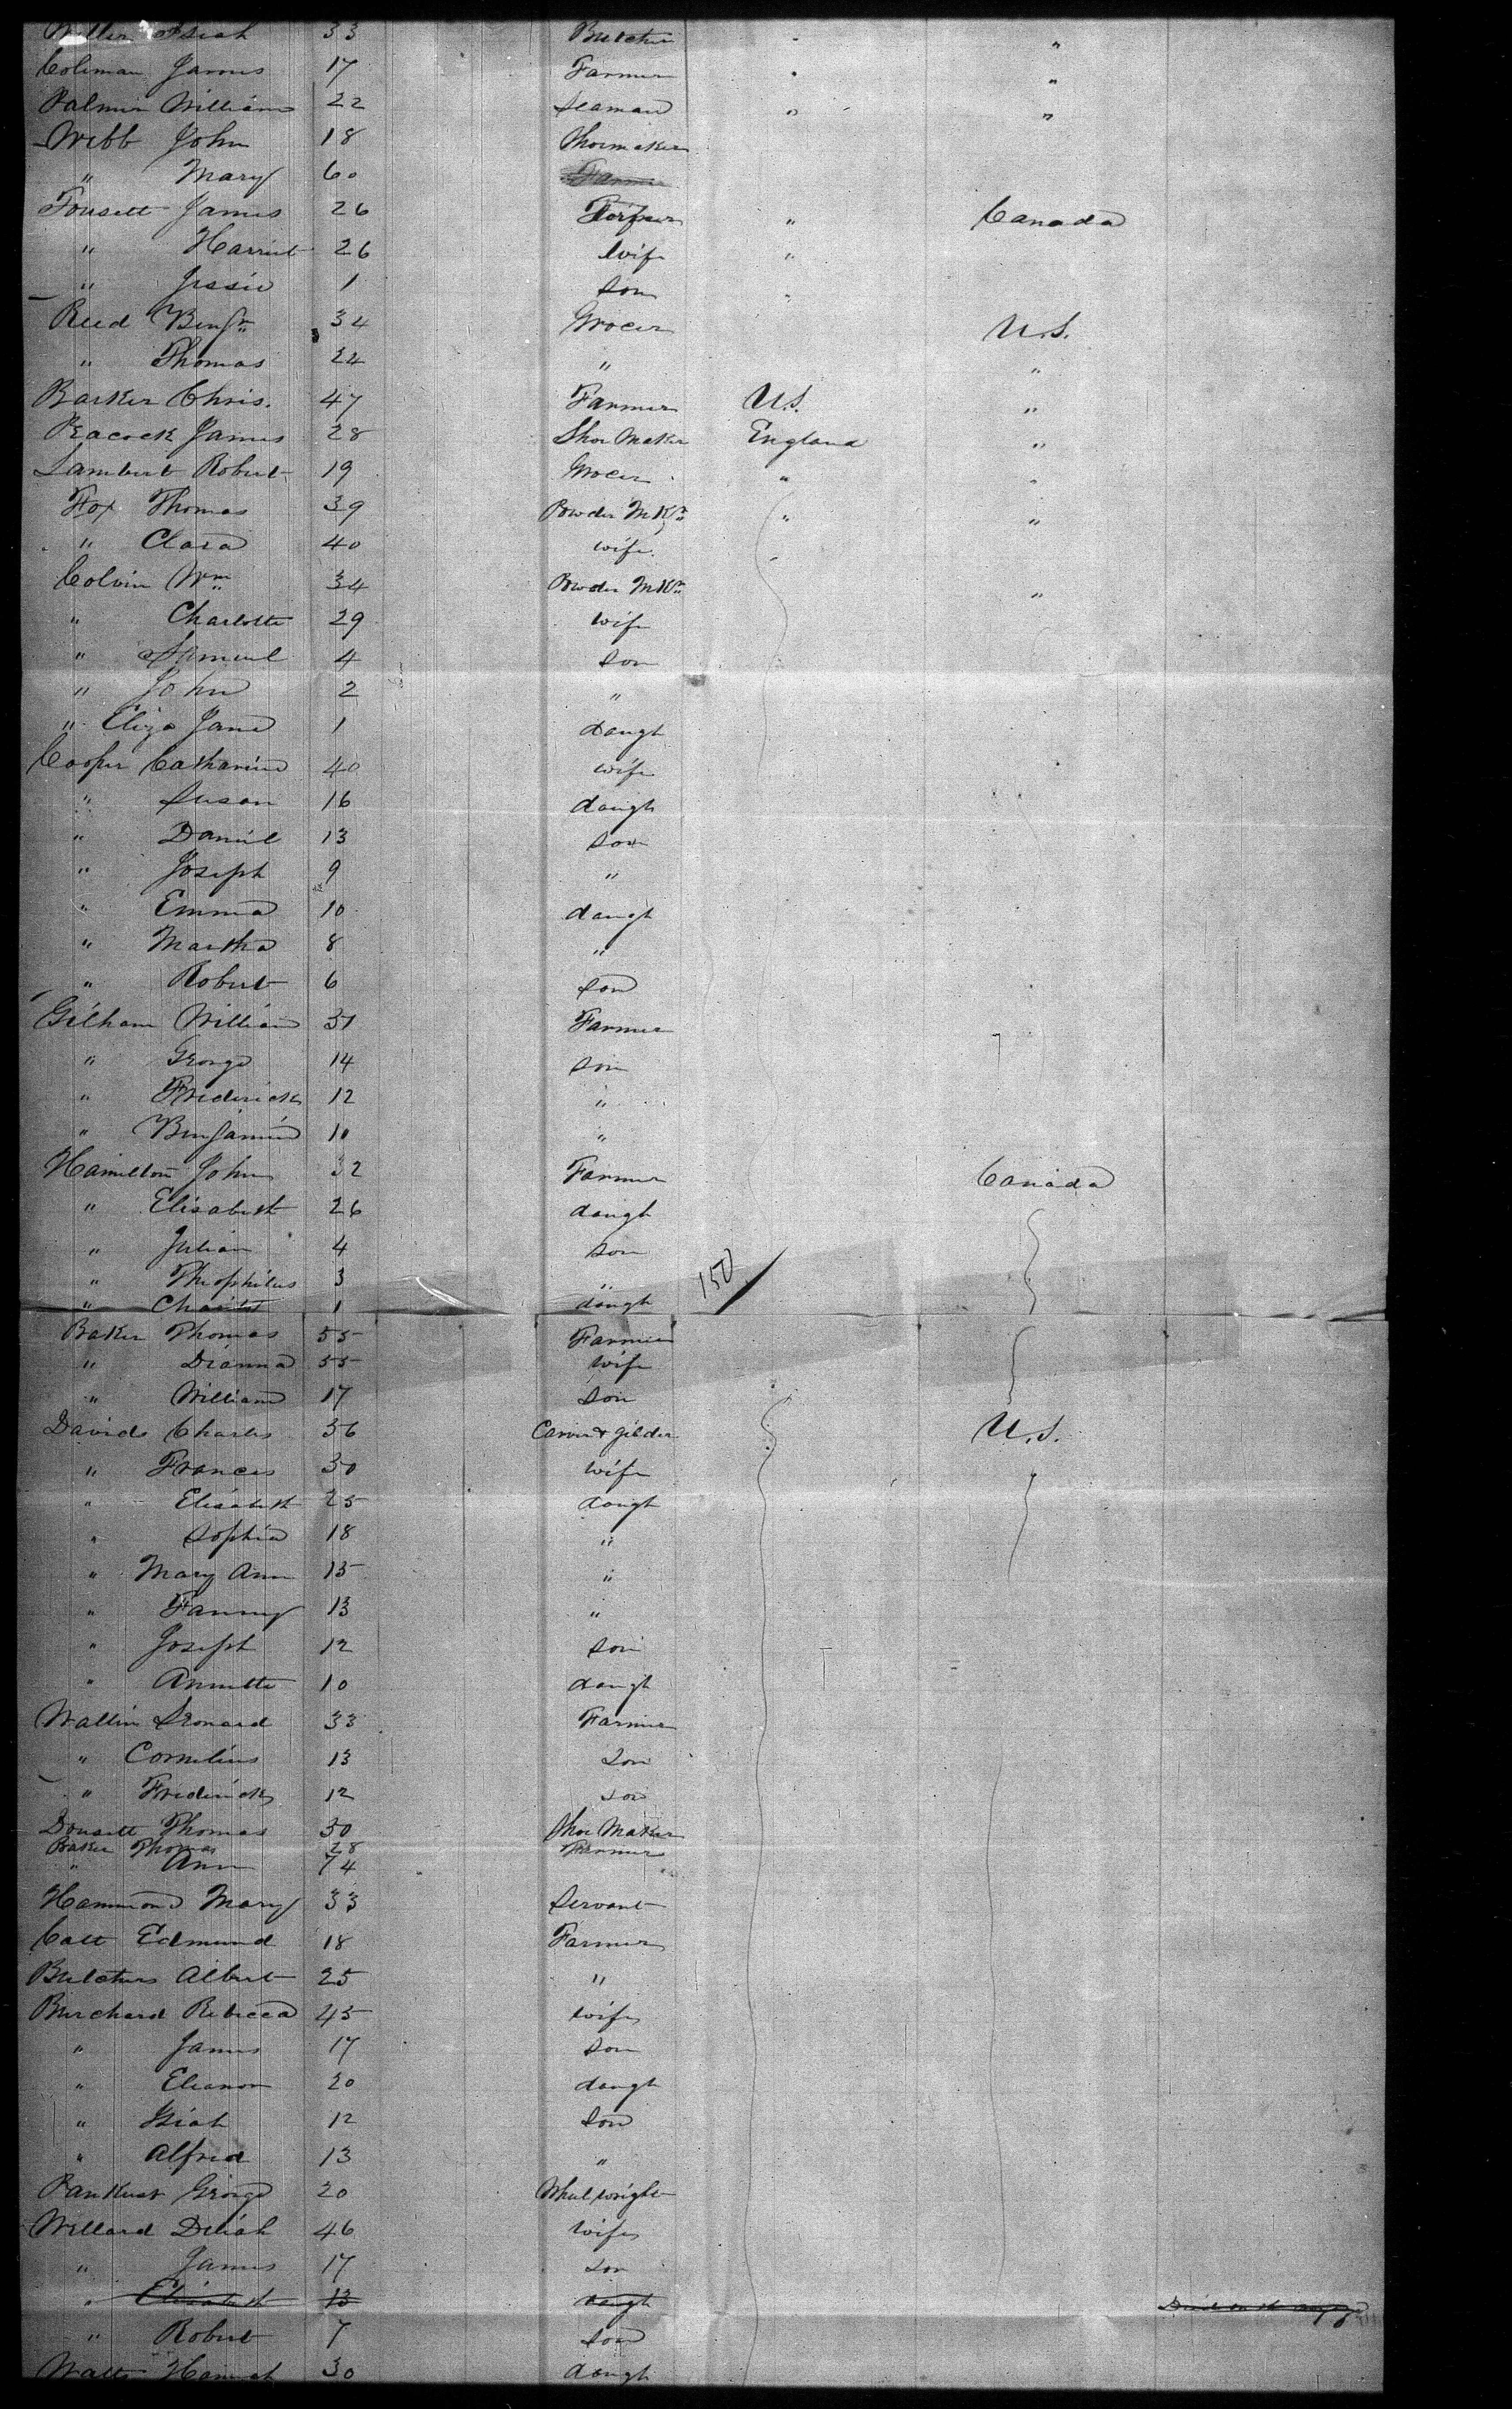 Isiah 33 Butcher " "
Coleman James 17 Farmer " "
Palmer William 22 Seaman " "
Webb John 18 Shoemaker
" Mary 60 Farmer
Fousett James 26 Canada
" Harriet 26 Wife "
" Jessie 1 Son "
Reed Benjn 34 Grocer U.S.
" Thomas 24 " "
Barker Chris. 47 Farmer U.S. "
Peacock James 28 Shoe Maker England "
Lambert Robert 19 Grocer " "
Fox Thomas 39 Powder Mkr " "
" Clara 40 wife
Colvin Wm 34 Powder Mkr "
" Charlotte 29 wife
" Samuel 4 Son
" John 2 "
" Eliza Jane 1 daugh
Cooper Catharine 40 wife
" Susan 16 daugh
" Daniel 13 Son
" Joseph 9 "
" Emma 10 daugh
" Martha 8 "
" Robert 6 Son
Gilham William 31 Farmer
" George 14 Son
" Frederick 12 "
" Benjamin 10 "
Hamilton John 32 Farmer Canada
" Elisabeth 26 daugh
" Julian 4 Son
" Theophilus 3 " 150
" 1 daugh
Baker Thomas 55 Farmer
" Dianna 55 Wife
" William 17 Son
Davids Charles 56 Carver & Gilder U.S.
" Frances 50 wife
" Elisabeth 25 daugh
" Sophia 18 "
" Mary Ann 15 "
" Fanny 13 "
" Joseph 12 Son
" Annette 10 daugh
Wallin Leonard 33 Farmer
" Cornelius 13 Son
" Frederick 12 Son
Dousett Thomas 30 Shoe Maker
Baker Thomas 28 Farmer
" Ann 74
Hammond Mary 33 Servant
Catt Edmund 18 Farmer
Butchers Albert 25 "
Burchard Rebecca 45 wife
" James 17 Son
" Eleanor 20 daugh
" Isiah 12 Son
" Alfred 13 "
Pankust George 20 Wheelwright
Willard Deliah 46 Wife
" James 17 Son
" Elisabeth 13 daugh
" Robert 7 Son
Watts 30 daugh